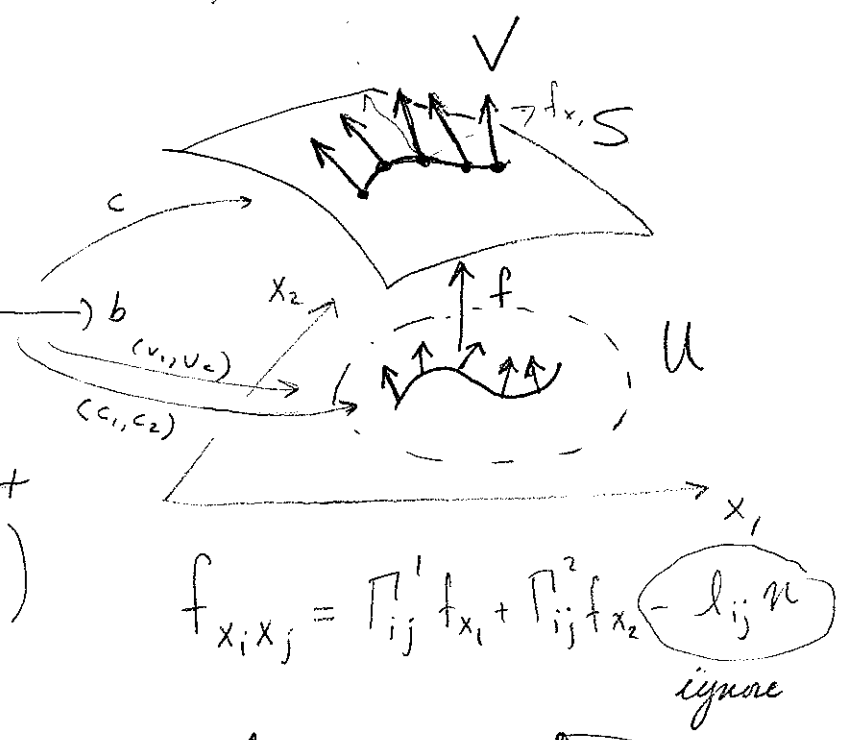 V
f_{x_1} S
c
x_2
f
) b
U
(v_1, v_2)
(c_1, c_2)
+
)
x_1
f_{x_i x_j} = Γ^1_{ij} f_{x_1} + Γ^2_{ij} f_{x_2} - l_{ij} n
ignore